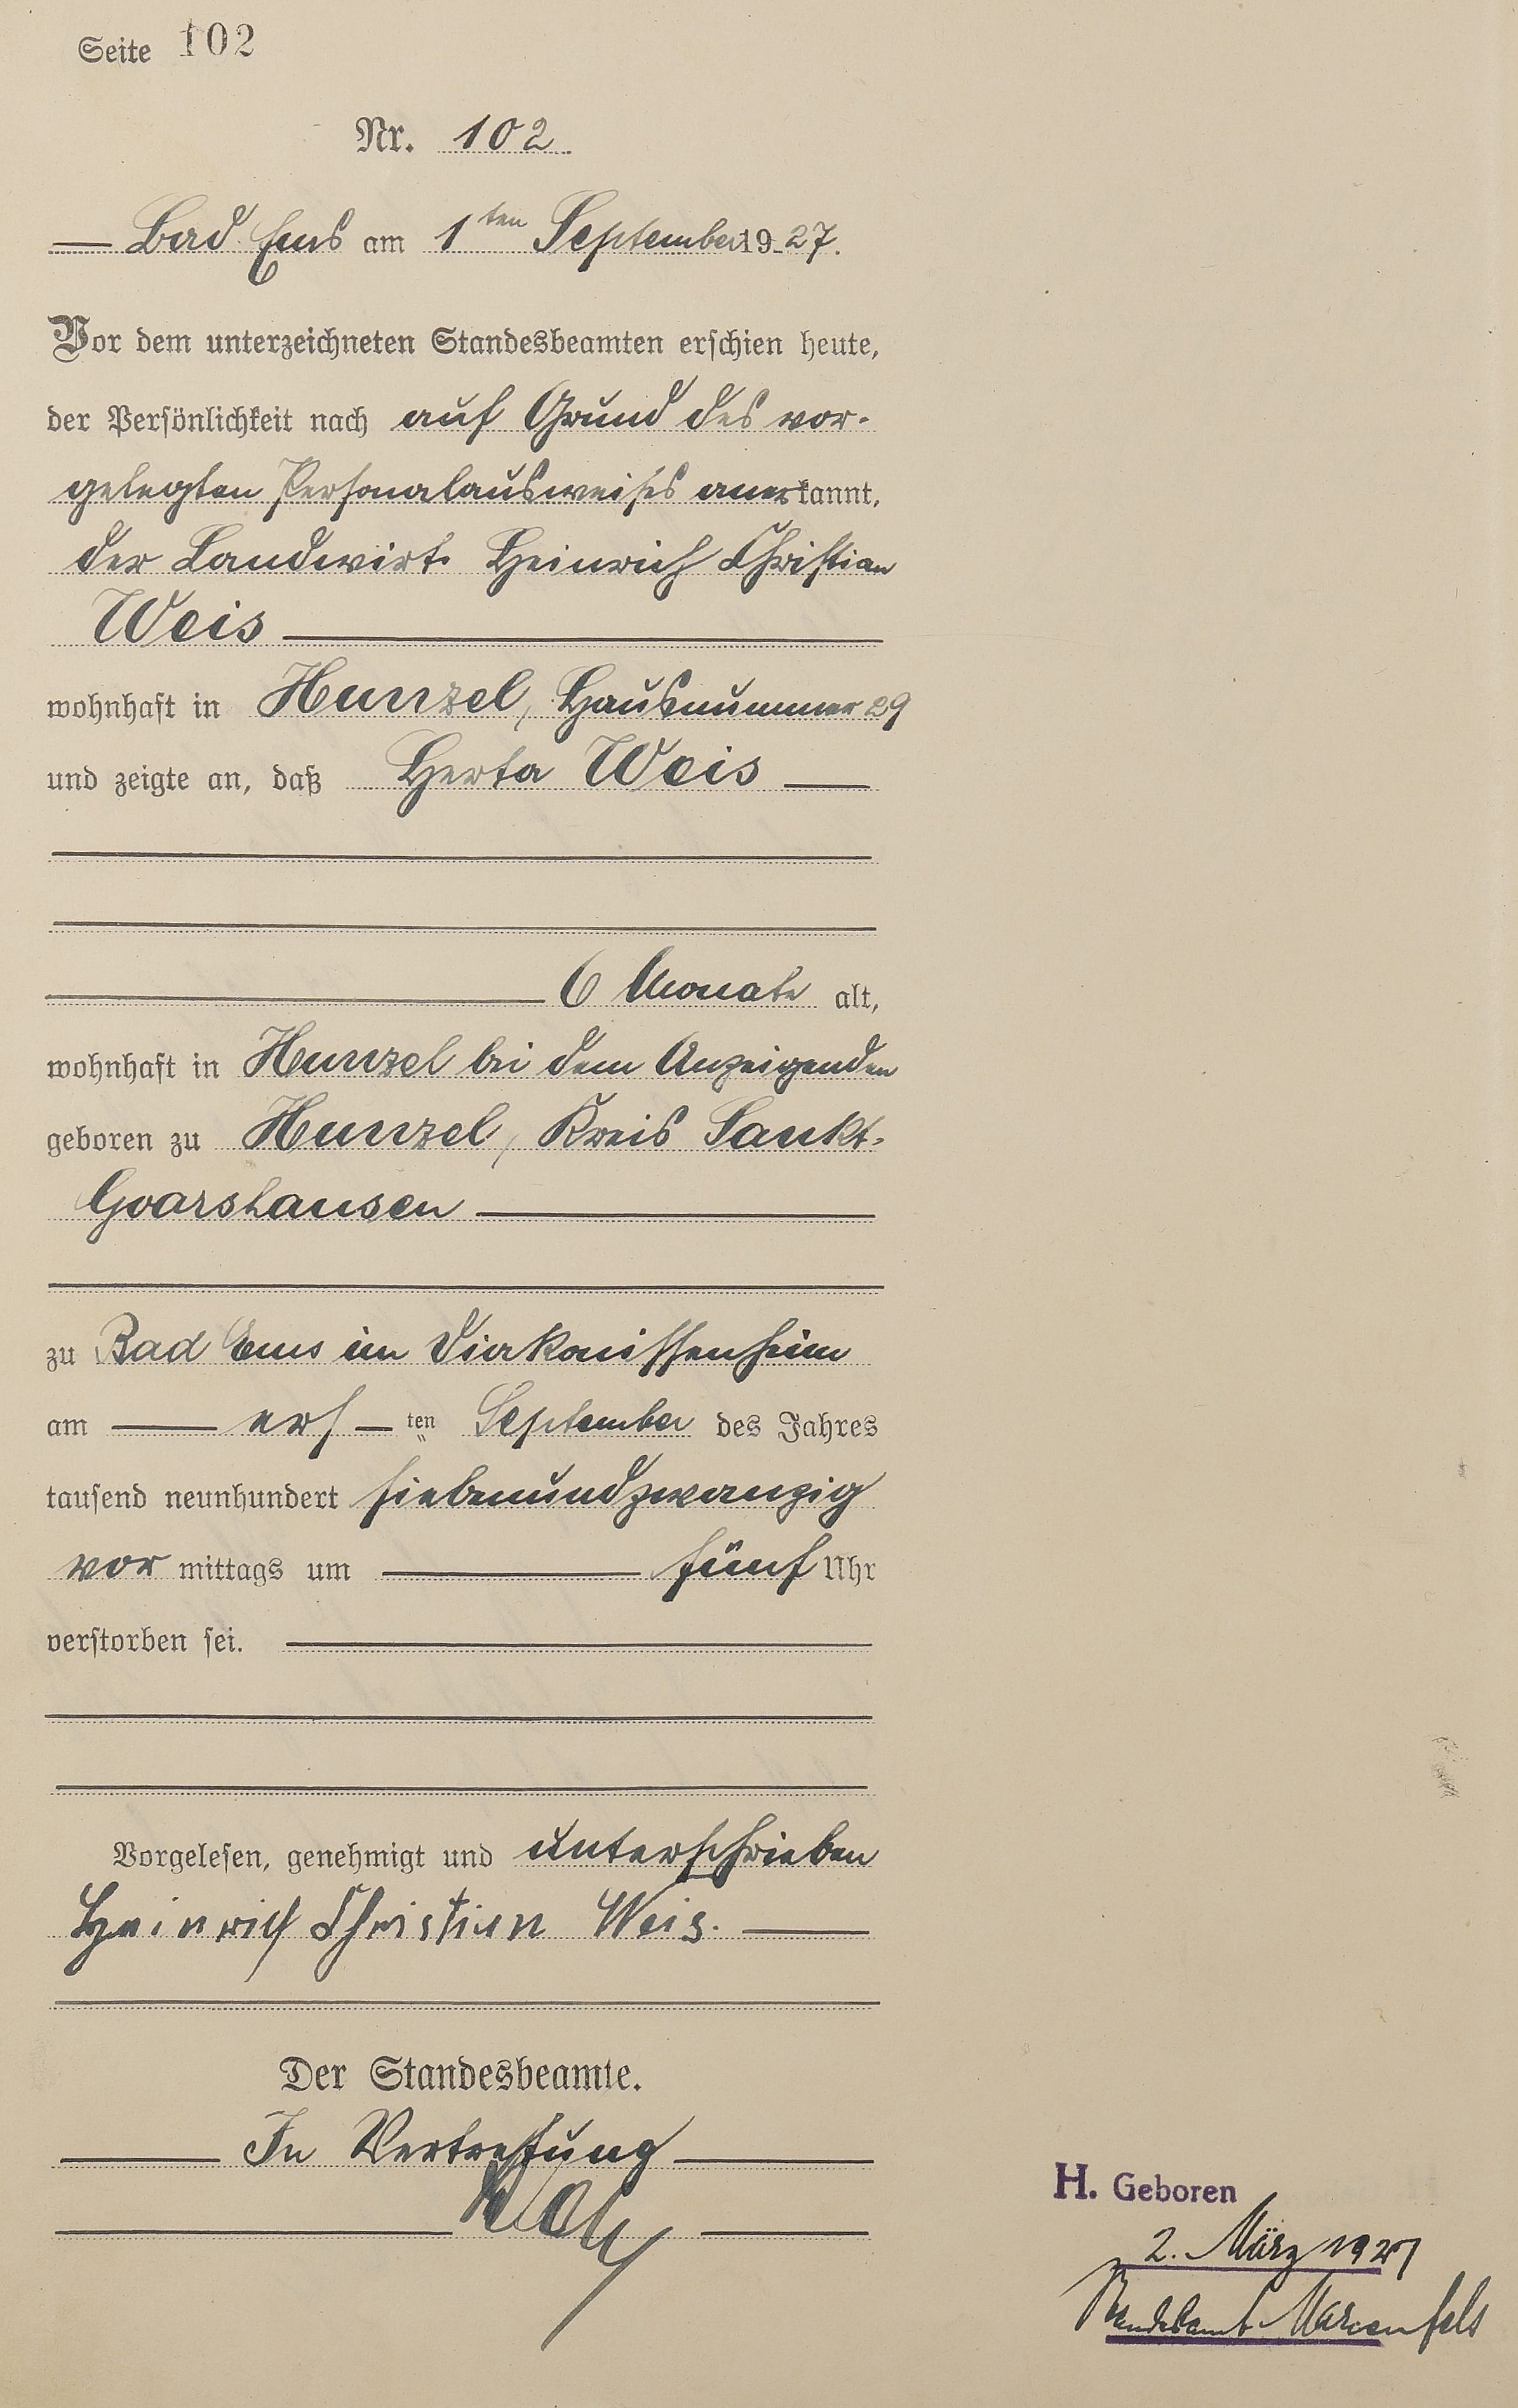 Seite 102
Nr. 102
Bad Ems am 1ten September 1927.
Vor dem unterzeichneten Standesbeamten erschien heute,
der Persönlichkeit nach auf Grund des vor-
gelegten Personalausweises anerkannt,
der Landwirt Heinrich Christian
Weis
wohnhaft in Hunzel, Hausnummer 29
und zeigte an, daß Herta Weis
6 Monate alt,
wohnhaft in Hunzel bei dem Anzeigenden
geboren zu Hunzel, Kreis Sankt-
Goarshausen
zu Bad Ems im Diakonissenheim
am ers ten September des Jahres
tausend neunhundert siebenundzwanzig
vor mittags um fünf Uhr
verstorben sei.
Vorgelesen, genehmigt und unterschrieben
Heinrich Christian Weis.
Der Standesbeamte.
In Vertretung
H. Geboren
2. März 1927
Standesamt Marienfels